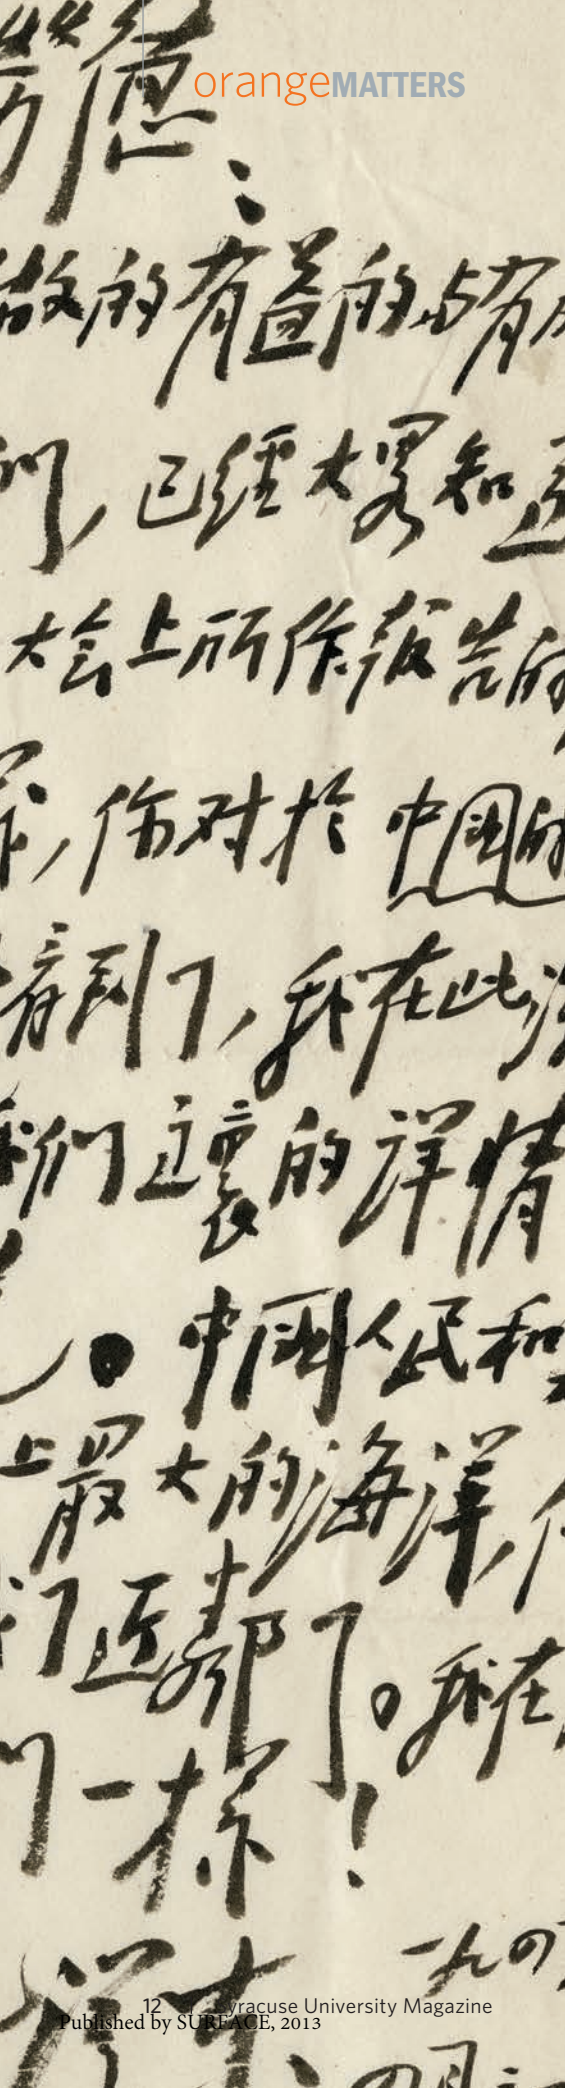 orangeMATTERS
劳德：
做的有益的与有
们，已經大畧知道
大会上所作报告的
你对於中國的
看到了，我在此
我们这裏的詳情
。中國人民和
上最大的海洋，
们近鄰了。我在
们一樣！
澤东
一九四
12 Syracuse University Magazine
Published by SURFACE, 2013